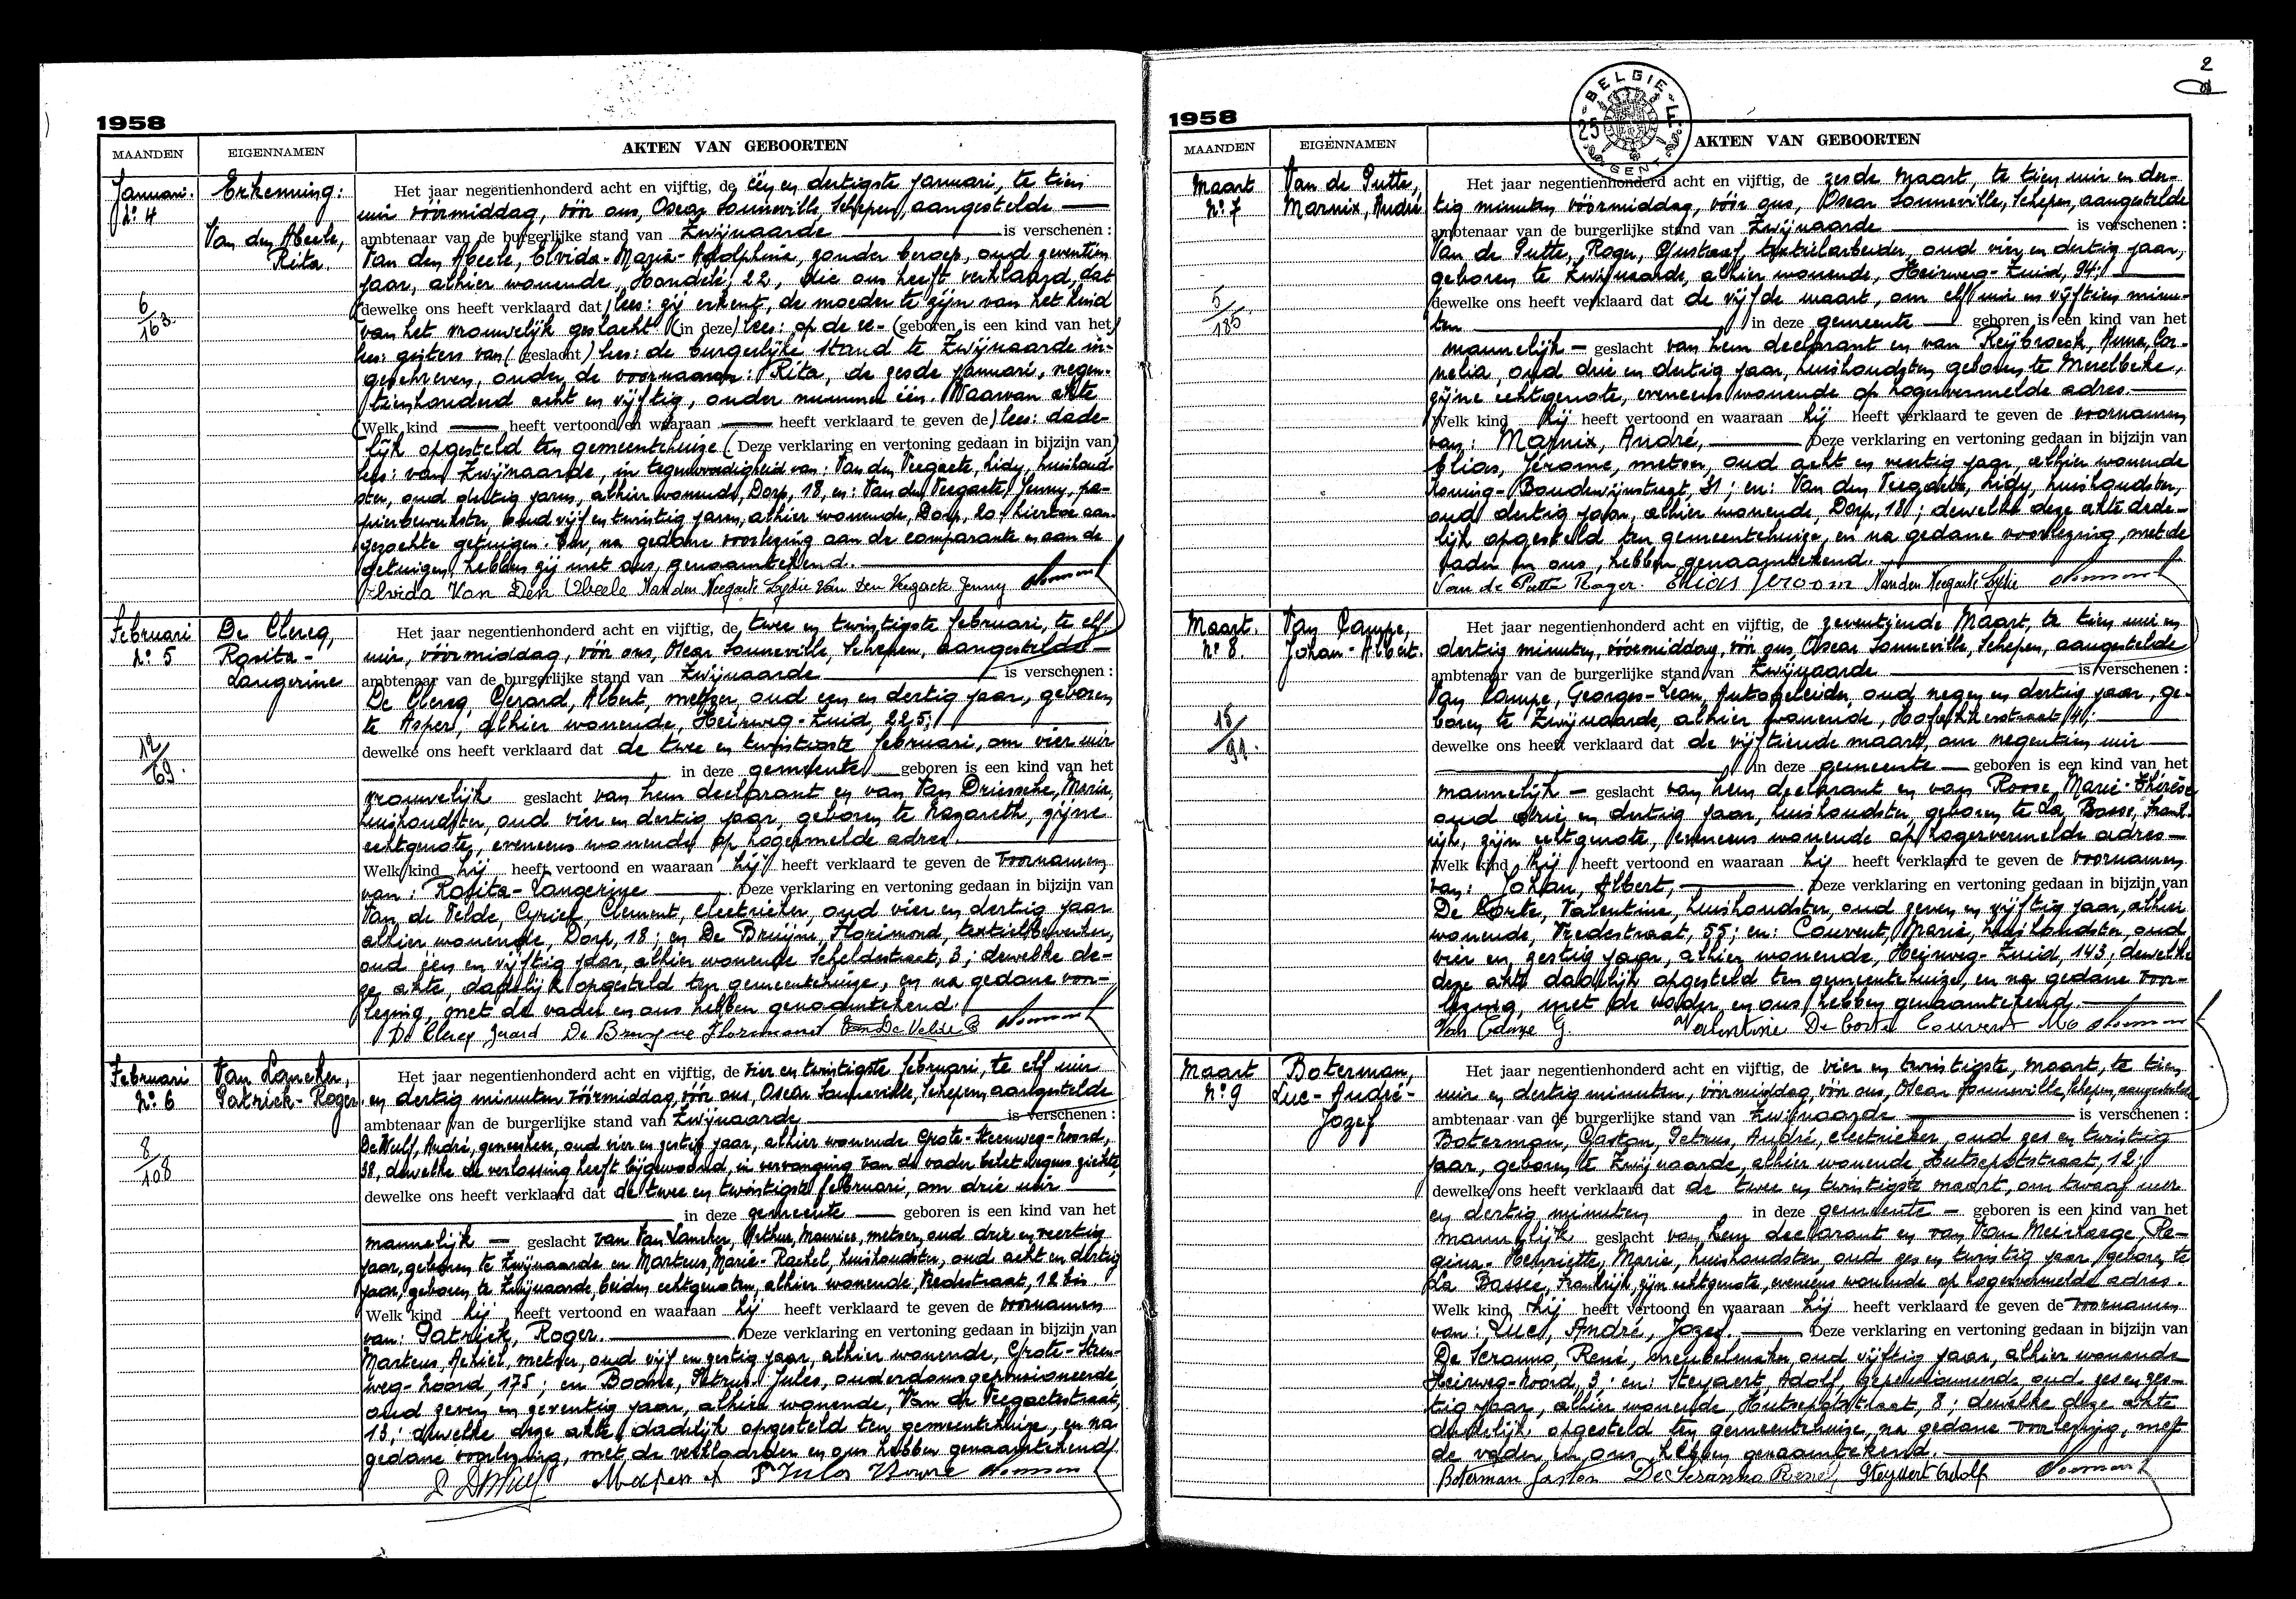 1958
MAANDEN
EIGENNAMEN
AKTEN VAN GEBOORTEN
Januari.
N° 4
6/163.
Erkenning:
Van den Abeele,
Rita.
Het jaar negentienhonderd acht en vijftig, de één en dertigste januari, te tien
uur vóórmiddag, vóór ons, Oscar Sonneville, Schepen, aangestelde
ambtenaar van de burgerlijke stand van Zwijnaarde is verschenen :
Van den Abeele, Elvida-Maria-Adolphina, zonder beroep, oud zeventien
jaar, alhier wonende, Hondelé, 22, die ons heeft verklaard, dat
(dewelke ons heeft verklaard dat) lees: zij erkent, de moeder te zijn van het kind
van het vrouwelijk geslacht (in deze) lees: op de re- (geboren is een kind van het)
lees: gisters van (geslacht) lees: de burgerlijke stand te Zwijnaarde in-
geschreven, onder de voornaam: Rita, de zesde januari, negen-
tienhonderd acht en vijftig, onder nummer één. Waarvan akte
(Welk kind heeft vertoond en waaraan heeft verklaard te geven de) lees: dade-
lijk opgesteld ten gemeentehuize (Deze verklaring en vertoning gedaan in bijzijn van)
lees: van Zwijnaarde, in tegenwoordigheid van: Van den Veegaete, Lidy, huishoud-
ster, oud dertig jaren, alhier wonende, Dorp, 18, en: Van den Veegaete, Jenny, pa-
pierbewerkster, oud vijf en twintig jaren, alhier wonende, Dorp, 20, hiertoe aan-
gezochte getuigen. En, na gedane voorlezing aan de comparante en aan de
getuigen, hebben zij met ons, genaamtekend.
Elvida Van Den Abeele Van den Veegaete Lydie Van Den Veegaete Jenny
Februari
N° 5
12/69.
De Clercq,
Rosita-
Langerine
Het jaar negentienhonderd acht en vijftig, de twee en twintigste februari, te elf
uur, vóórmiddag, vóór ons, Oscar Sonneville, Schepen, aangestelde
ambtenaar van de burgerlijke stand van Zwijnaarde is verschenen :
De Clercq, Gerard, Albert, metser, oud een en dertig jaar, geboren
te Asper, alhier wonende, Heirweg-Zuid, 225;
dewelke ons heeft verklaard dat de twee en twintigste februari, om vier uur
in deze gemeente geboren is een kind van het
vrouwelijk geslacht van hem declarant en van Van Driessche, Maria,
huishoudster, oud vier en dertig jaar, geboren te Nazareth, zijne
echtgenote, eveneens wonende op hogermelde adres.
Welk kind hij heeft vertoond en waaraan hij heeft verklaard te geven de voornamen
van: Rosita-Langerine Deze verklaring en vertoning gedaan in bijzijn van
Van de Velde, Cyriel, Clement, electrieker, oud vier en dertig jaar
alhier wonende, Dorp, 18; en De Bruijne, Florimond, textielbewerker,
oud één en vijftig jaar, alhier wonende Scheldestraat, 3; dewelke de-
ze akte, dadelijk opgesteld ten gemeentehuize, en na gedane voor-
lezing, met de vader en ons hebben genaamtekend.
De Clercq Gerard De Bruyne Florimond Van De Velde C
Februari
N° 6
8/108
Van Lancker,
Patrick-Roger.
Het jaar negentienhonderd acht en vijftig, de vier en twintigste februari, te elf uur
en dertig minuten vóórmiddag, vóór ons, Oscar Sonneville, Schepen, aangestelde
ambtenaar van de burgerlijke stand van Zwijnaarde is verschenen :
De Wulf, André, geneesheer, oud vier en zestig jaar, alhier wonende Grote-Steenweg-Noord,
38, dewelke de verlossing heeft bijgewoond, in vervanging van de vader belet wegens ziekte,
dewelke ons heeft verklaard dat de twee en twintigste februari, om drie uur
in deze gemeente geboren is een kind van het
mannelijk geslacht van Van Lancker, Arthur, Maurice, metser, oud drie en veertig
jaar, geboren te Zwijnaarde en Martens, Marie-Rachel, huishoudster, oud acht en dertig
jaar, geboren te Zwijnaarde, beiden echtgenoten, alhier wonende, Vredestraat, 12 bis
Welk kind hij heeft vertoond en waaraan hij heeft verklaard te geven de voornamen
van: Patrick, Roger. Deze verklaring en vertoning gedaan in bijzijn van
Martens, Achiel, metser, oud vijf en zestig jaar, alhier wonende, Grote-Steen-
weg-Noord, 175; en Boone, Petrus-Jules, ouderdomsgepensioneerde,
oud zeven en zeventig jaar, alhier wonende, Van de Veegaetestraat,
13; dewelke deze akte, dadelijk opgesteld ten gemeentehuize, en na
gedane voorlezing, met de verklaarder en ons hebben genaamtekend.
2
1958
BELGIE
25
GENT
MAANDEN
EIGENNAMEN
AKTEN VAN GEBOORTEN
Maart
N° 7
5/185.
Van de Putte,
Marnix, André
Het jaar negentienhonderd acht en vijftig, de zesde maart, te tien uur en der-
tig minuten vóórmiddag, vóór ons, Oscar Sonneville, Schepen, aangestelde
ambtenaar van de burgerlijke stand van Zwijnaarde is verschenen :
Van de Putte, Roger, Gustaaf, textielarbeider, oud vier en dertig jaar,
geboren te Zwijnaarde, alhier wonende, Heirweg-Zuid, 94;
dewelke ons heeft verklaard dat de vijfde maart, om elf uur en vijftien minu-
ten in deze gemeente geboren is een kind van het
mannelijk geslacht van hem declarant en van Reijbroeck, Anna, Cor-
nelia, oud drie en dertig jaar, huishoudster, geboren te Merelbeke,
zijne echtgenote, eveneens wonende op hogervermelde adres.
Welk kind hij heeft vertoond en waaraan hij heeft verklaard te geven de voornamen
van: Marnix, André, Deze verklaring en vertoning gedaan in bijzijn van
Elias, Jérome, metser, oud acht en veertig jaar, alhier wonende
Koning-Boudewijnstraat, 31; en: Van den Veegaete, Lidy, huishoudster,
oud dertig jaar, alhier wonende, Dorp, 18; dewelke deze akte dade-
lijk opgesteld ten gemeentehuize, en na gedane voorlezing, met de
vader en ons, hebben genaamtekend.
Van de Putte Roger. Elias Jeroom Van den Veegaete Lydie
Maart.
N° 8.
15/91.
Van Campe,
Johan-Albert.
Het jaar negentienhonderd acht en vijftig, de zeventiende Maart, te tien uur en
dertig minuten, vóórmiddag, vóór ons, Oscar Sonneville, Schepen, aangestelde
ambtenaar van de burgerlijke stand van Zwijnaarde is verschenen :
Van Campe, Georges-Leon, Autogeleider, oud negen en dertig jaar, ge-
boren te Zwijnaarde, alhier wonende,
dewelke ons heeft verklaard dat de vijftiende maart, om negentien uur
in deze gemeente geboren is een kind van het
mannelijk geslacht van hem declarant en van Roose, Marie-Thérèse
oud drie en dertig jaar, huishoudster, geboren te La Bassé, Frank-
rijk, zijn echtgenote, eveneens wonende op hogervermelde adres
Welk kind hij heeft vertoond en waaraan hij heeft verklaard te geven de voornamen
van: Johan, Albert, Deze verklaring en vertoning gedaan in bijzijn van
De Corte, Valentine, huishoudster, oud zeven en vijftig jaar, alhier
wonende, Vredestraat, 55; en: Couvent, Maria, huishoudster, oud
vier en zestig jaar, alhier wonende, Heirweg-Zuid, 143, dewelke
deze akte dadelijk opgesteld ten gemeentehuize, en na gedane voor-
lezing, met de vader en ons, hebben genaamtekend.
Van Campe G. Valentine De Corte Couvent Ma
Maart
N° 9
Boterman,
Luc-André-
Jozef
Het jaar negentienhonderd acht en vijftig, de vier en twintigste, maart, te tien
uur en dertig minuten, vóórmiddag, vóór ons, Oscar Sonneville, Schepen, aangestelde
ambtenaar van de burgerlijke stand van Zwijnaarde is verschenen :
Boterman, Gaston, Petrus, André, electrieker, oud zes en twintig
jaar, geboren te Zwijnaarde, alhier wonende Hutsepotstraat, 12;
dewelke ons heeft verklaard dat de twee en twintigste maart, om twaalf uur
en dertig minuten in deze gemeente geboren is een kind van het
mannelijk geslacht van hem declarant en van Van Meirhaege, Re-
gina-Henriette, Marie, huishoudster, oud zes en twintig jaar, geboren te
La Bassee, Frankrijk, zijn echtgenote, eveneens wonende op hogervermelde adres.
Welk kind hij heeft vertoond en waaraan hij heeft verklaard te geven de voornamen
van: Luc, André, Jozef. Deze verklaring en vertoning gedaan in bijzijn van
De Scranno, René, meubelmaker, oud vijftig jaar, alhier wonende
Heirweg-Noord, 3; en: Steyaert, Adolf, gepensioneerde, oud zes en zes-
tig jaar, alhier wonende, Hutsepotstraat, 8; dewelke deze akte
dadelijk, opgesteld ten gemeentehuize, na gedane voorlezing, met
de vader en ons, hebben genaamtekend.
Boterman Gaston De Scranno René, Steyaert Adolf